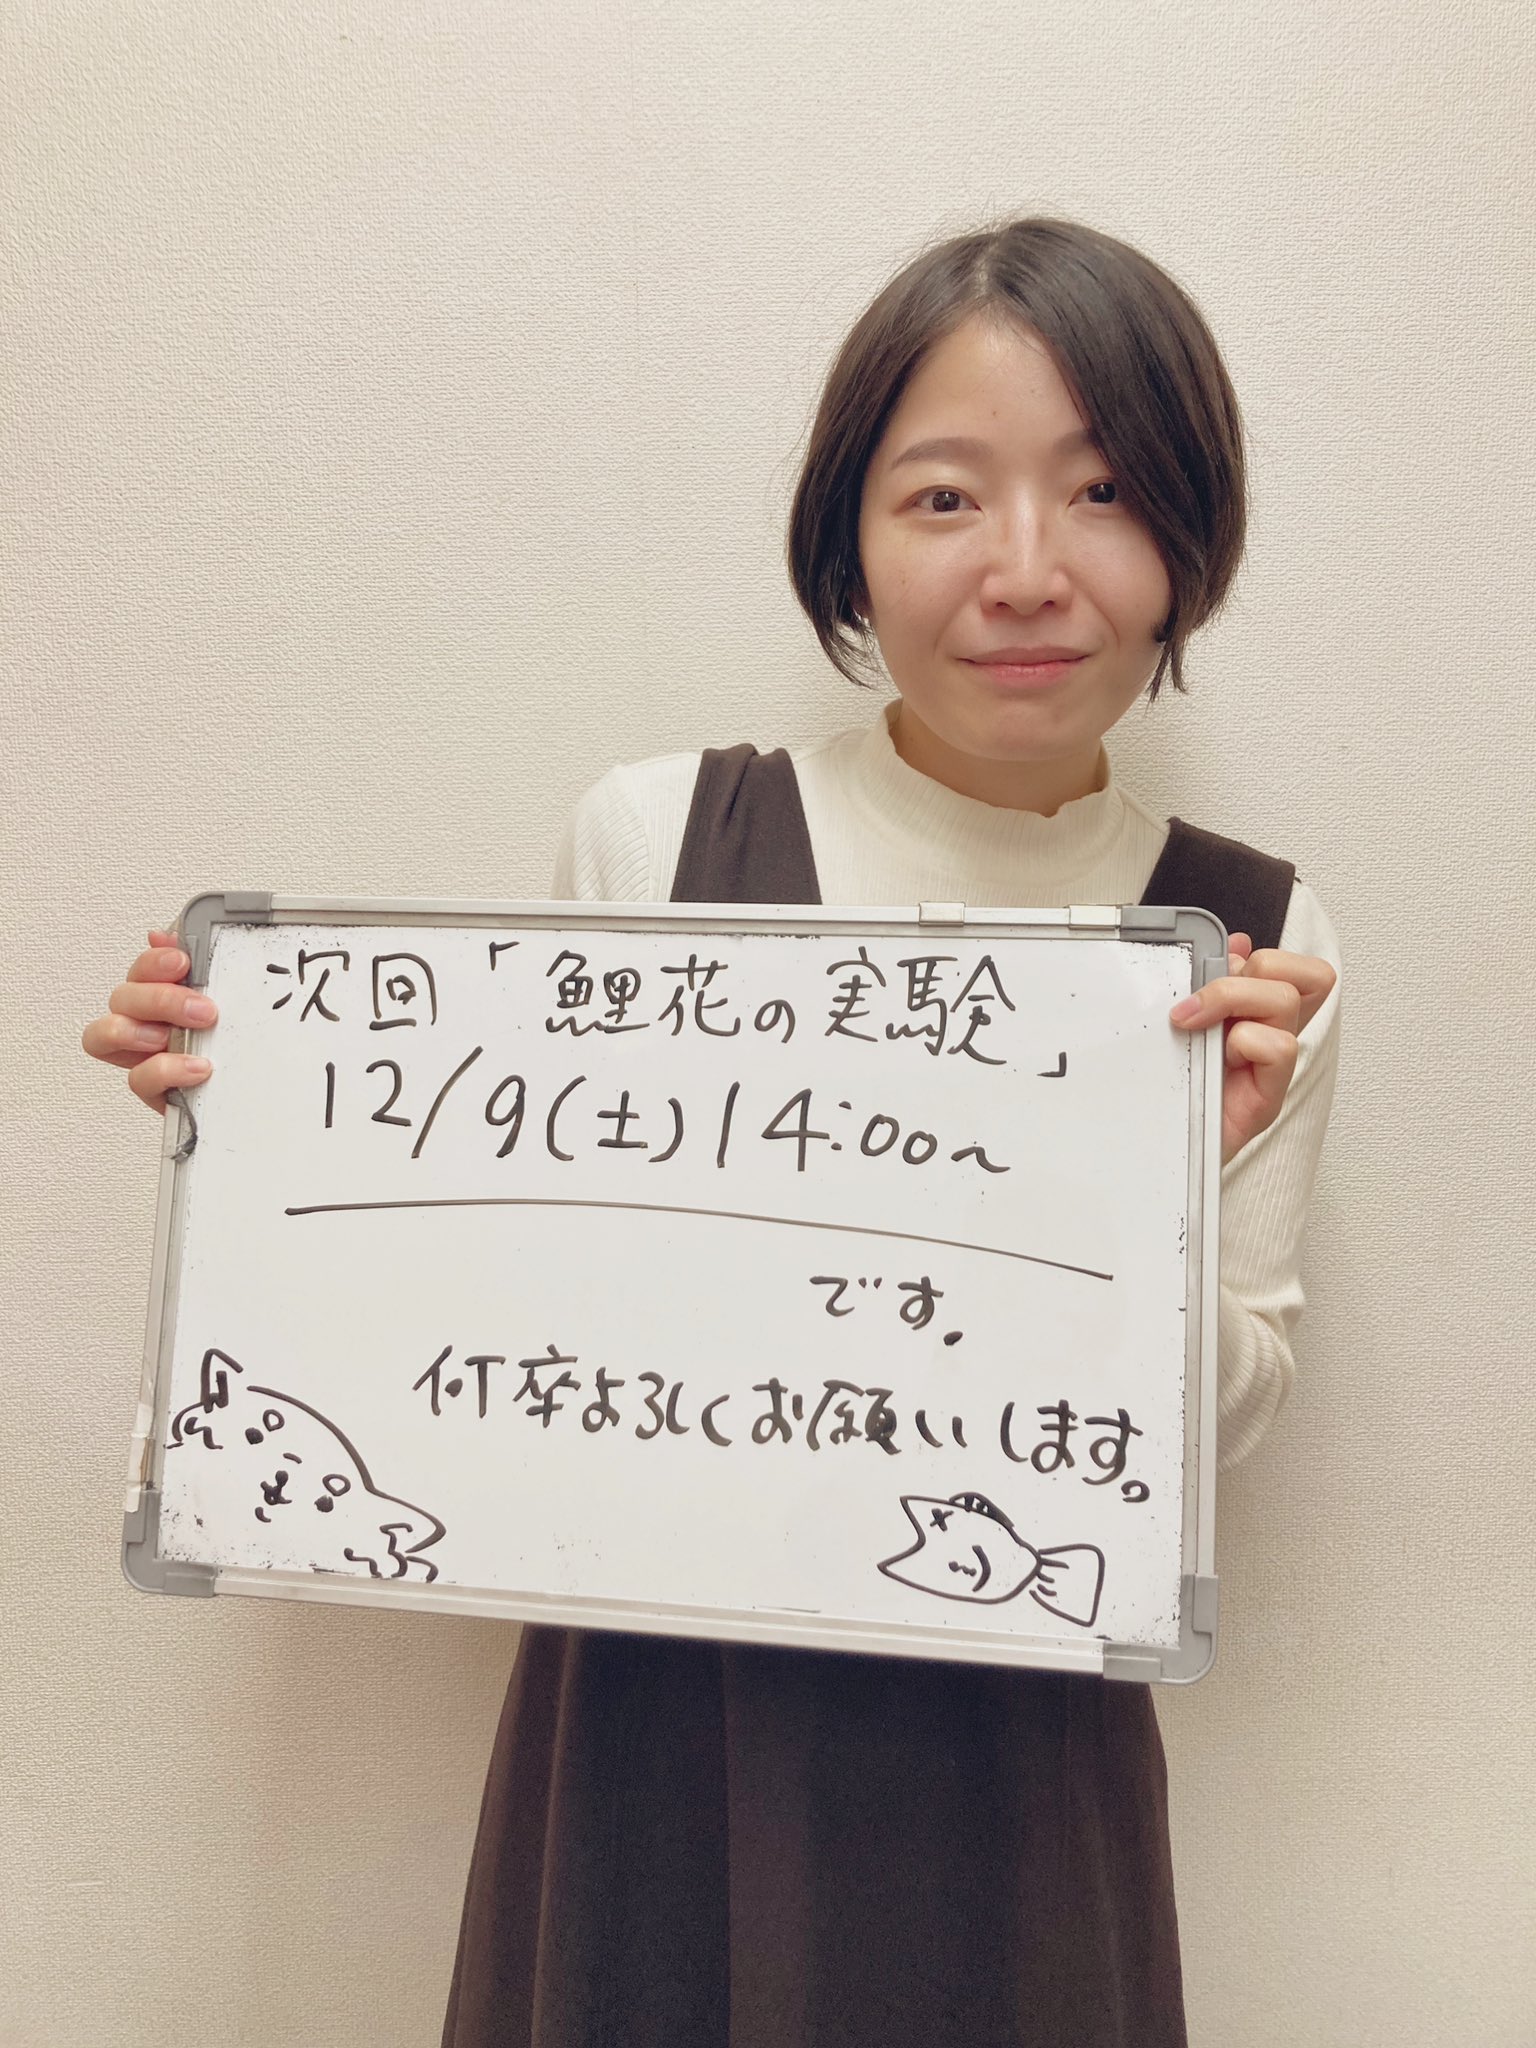 次回「鯉花の実験」
12/9(土)14:00~
です.
何卒よろしくお願いします。